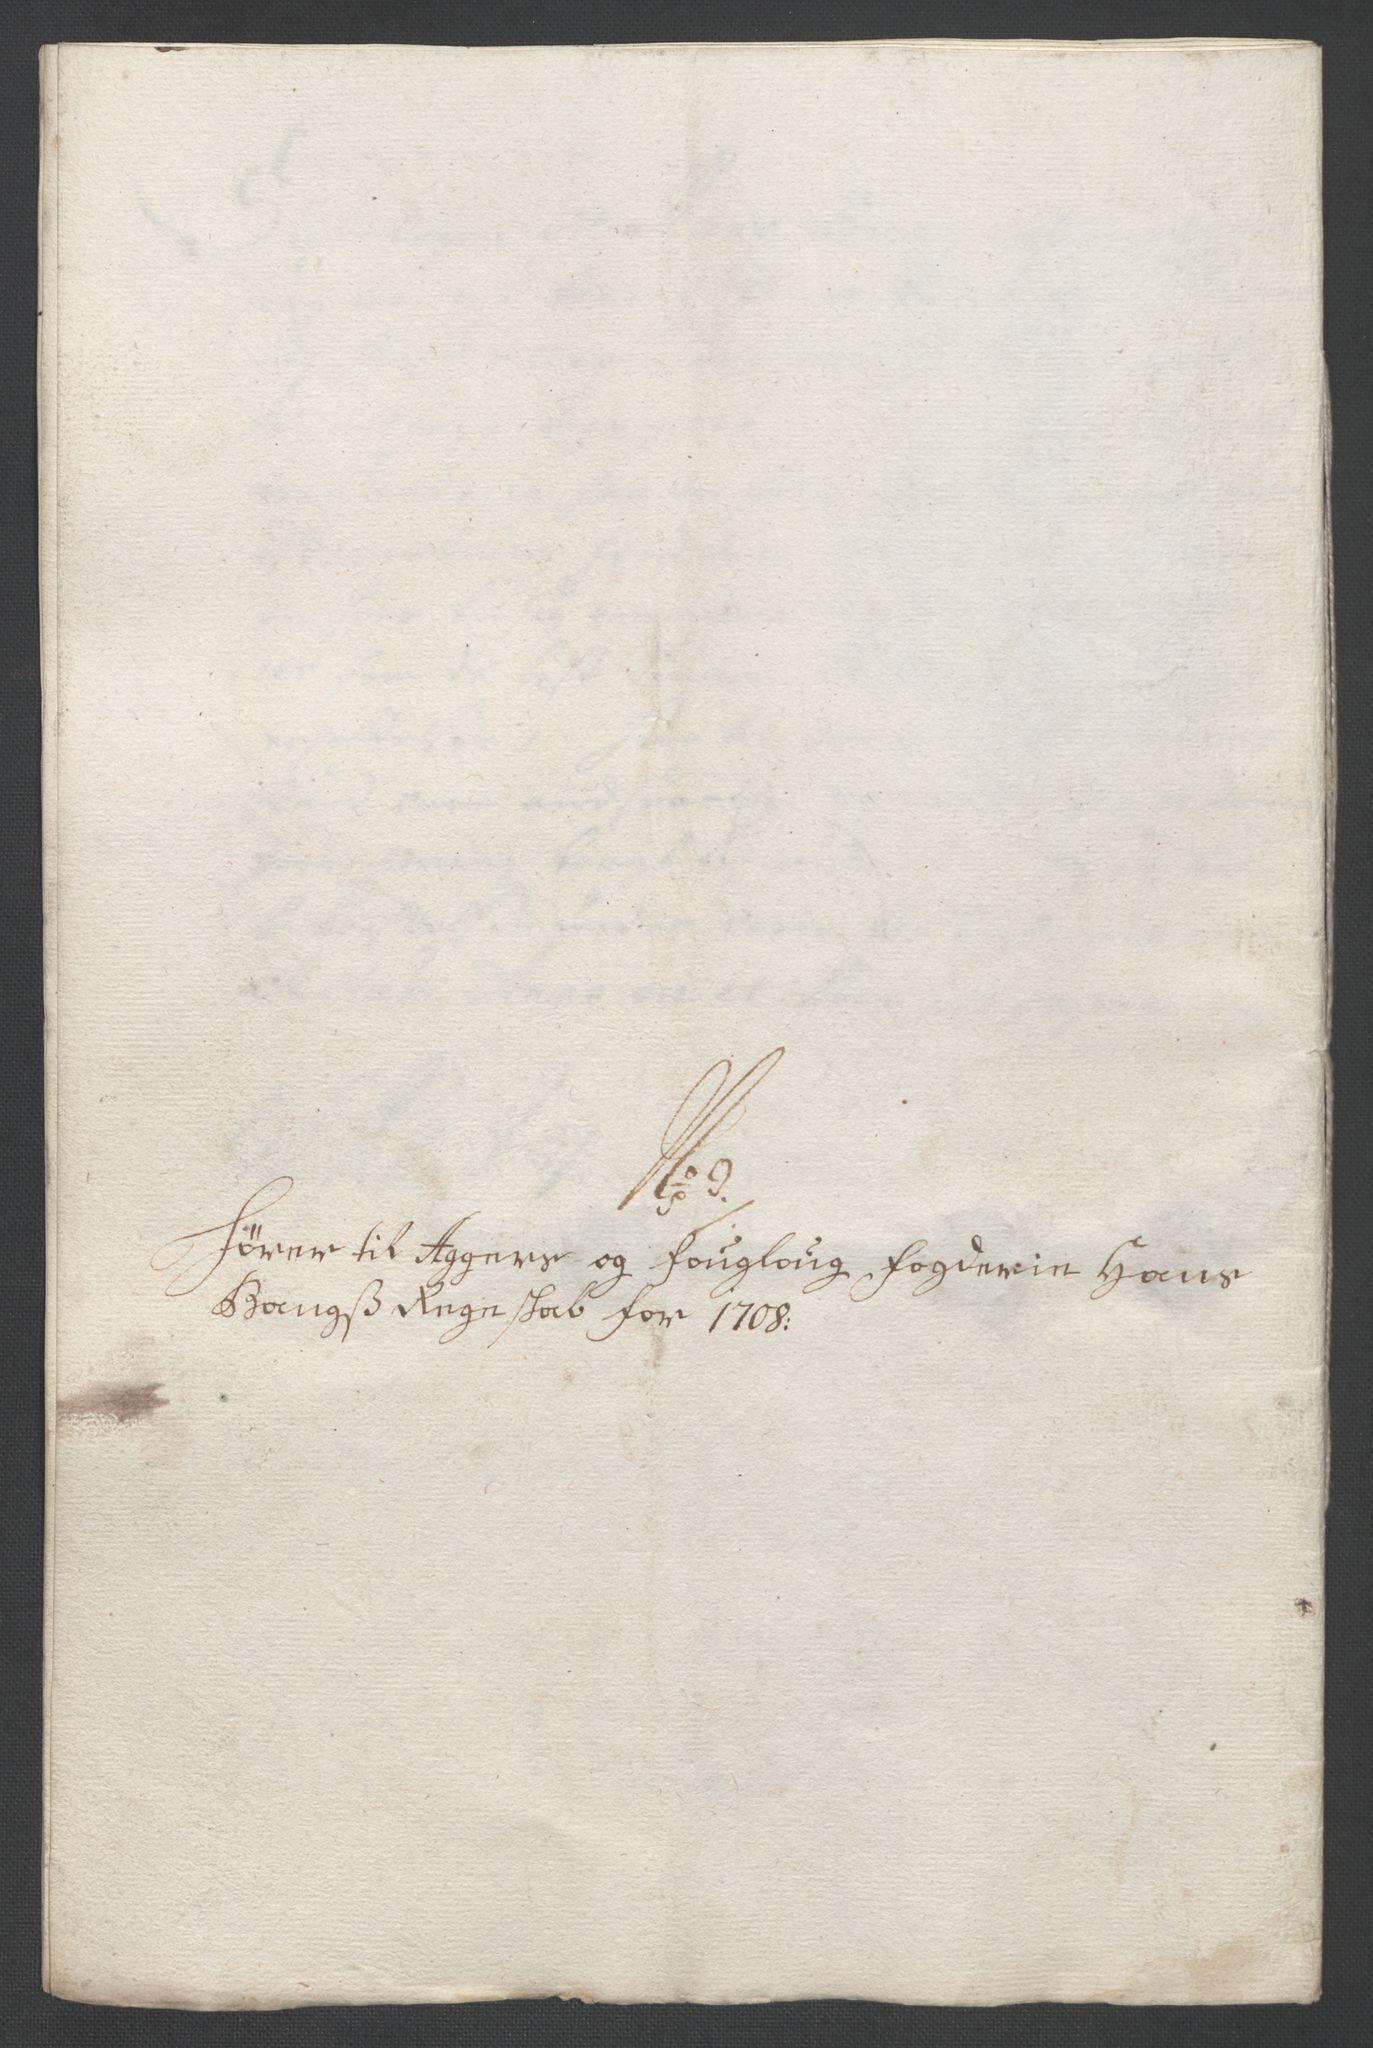 No 9.
Hörer til Aggers og fougloug fogderie Hans
Bangß Regeskab for 1708: